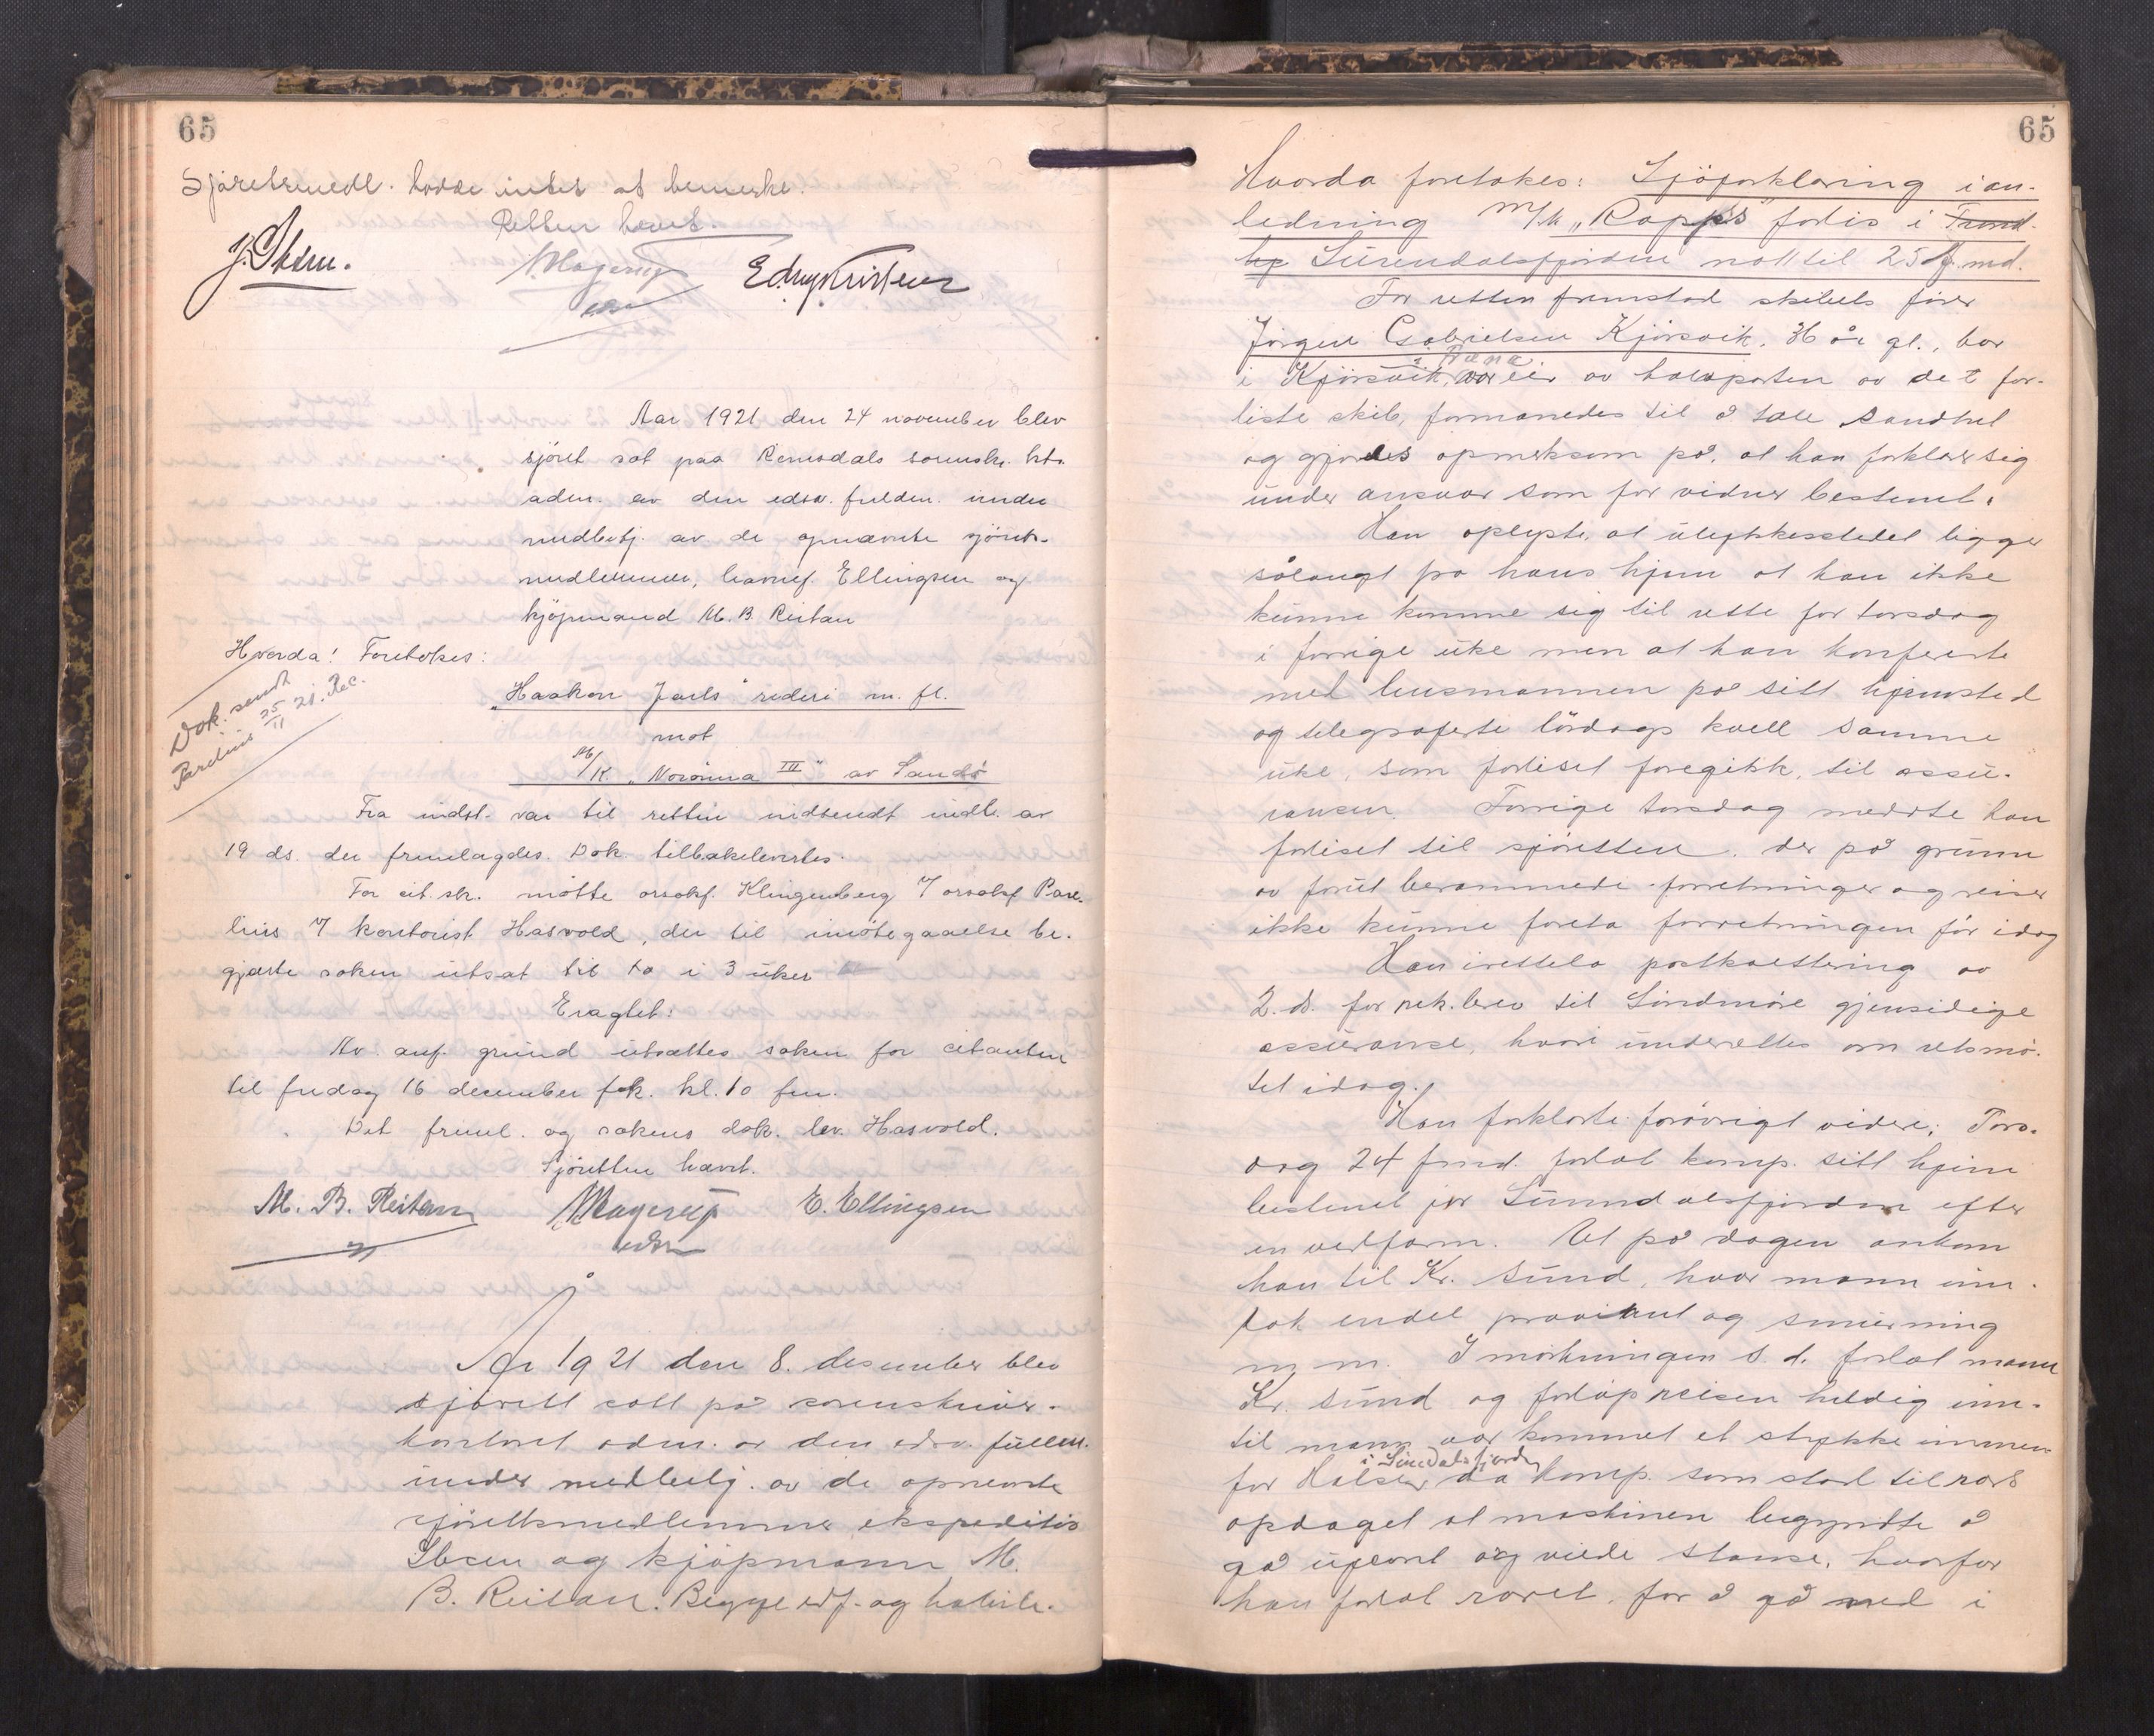 65
Sjöretsmedl. hadde intet at bemerke.
Retten hævet.
J. Ibsen. Magerup Edv. Kristensen
edsv
Aar 1921 den 24 november blev
sjöret sat paa Romsdals sorenskr. ktr.
adm. av den edsv. fuldm. under
medbetj. av de opnævnte sjörets-
medlemmer, havnef. Ellingsen og
kjöpmand M. B. Reitan
Hvorda! Foretokes:
Dok. sendt
Parelius 25/11 21. Rec.
"Haakon Jarls" rederi m. fl.
mot
M/K. "Norönna III" av Sandö
Fra indst. var til retten indsendt indl. av
19 ds. der fremlagdes. Dok. tilbakelevertes.
For cit. sk. mötte orsakf. Klingenberg v/ orsakf Pare-
lius v/ kontorist Hasvold, der til imötegaaelse be-
gjærte saken utsat til to i 3 uker
Eragtet:
Av anf. grund utsættes saken for citanten
til fredag 16 december fk. kl. 10 fm.
Det freml. og sakens dok. lev. Hasvold.
Sjöretten hævet.
M. B. Reitan Magerup E. Ellingsen
edsv
År 1921 den 8. desember blev
sjörett satt på sorenskriver-
kontoret adm. av den edsv. fullm.
under medbetj. av de opnevnte
sjörettsmedlemmer ekspeditör
Ibsen og kjöpmann M.
B. Reitan. Begge edf. og habile.
65
Hvorda foretokes: Sjöforklaring i an-
ledning M/k "Rapp's" forlis i Trond-
hj Surendalsfjorden natt til 25 f. md.
For retten fremstod skibets förer
Jörgen Gabrielsen Kjörsvik, 36 år gl., bor
i Tustna
i Kjörsvik, var eier av halvparten av det for-
liste skib, formanedes til å tale sandhet
og gjordes opmerksom på, at han forklarer sig
under ansvar som for vidner bestemt.
Han oplyste, at ulykkesstedet ligger
sålangt fra hans hjem at han ikke
kunne komme sig til rette för torsdag
i forrige uke men at han konfererte
med lensmannen på sitt hjemsted
og telegraferte lördags kvell samme
uke, som forliset foregikk, til assu-
ransen. Forrige torsdag meldte han
forliset til sjöretten, der på grunn
av forut berammede forretninger og reiser
ikke kunne foreta forretningen för idag
Han irettela postkvittering av
2. ds. for rek. brev til Söndmöre gjensidige
assuranse, hvori underettes om retsmö-
tet idag.
Han forklarte forövrigt videre: Tors-
dag 24 f. md. forlot komp. sitt hjem
bestemt för Sunndalsfjorden efter
en vedfarm. Ut på dagen ankom
han til Kr. sund, hvor mann inn-
tok endel proviant og smurning
m. m. I mörkningen s. d. forlot mann
Kr. sund og forlöp reisen heldig inn-
til mann var kommet et stykke innen-
i Surendalsfjorden
for Halsen da komp. som stod til rors
opdaget at maskinen begynnte å
gå ujevnt og vilde stanse, hvorfor
han forlot roret for å gå ned i